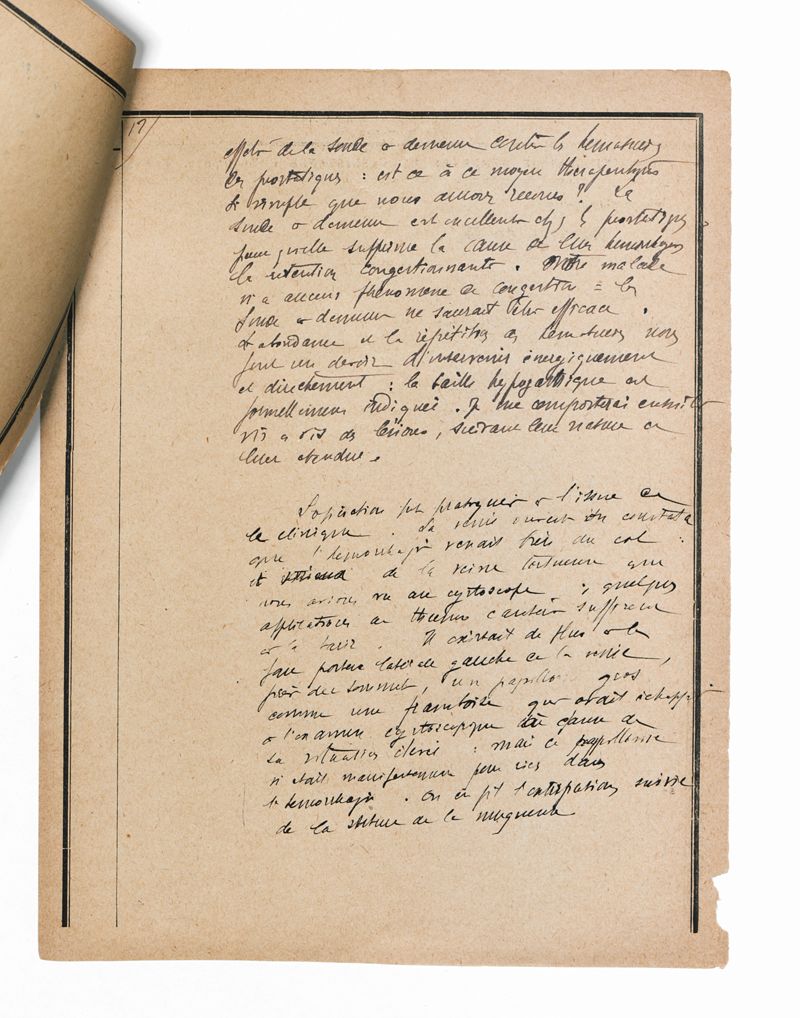 17
effets de la sonde a demeure contre les hematuries
des prostatiques : est ce à ce moyen therapeutique
si simple que nous aurons recours ? La
sonde a demeure est excellente chez les prostatiques
parce qu'elle supprime la cause de leur hemorragie
la retention congestionnante . Notre malade
n'a aucun phénomène de congestion = la
sonde a demeure ne saurait être efficace .
L'abondance et la répétition des hematuries nous
font un devoir d'intervenir énergiquement
et directement : la taille hypogastrique est
formellement indiquée . Je me comporterai ensuite
vis a vis des lésions, suivant leur nature et
leur etendue .
L'opération fut pratiquée a l'issue de
la clinique . La vessie ouverte on constata
que l'hemorragie venait bien du col :
et de la veine tortueuse que
nous avions vu au cystoscope : quelques
applications de thermo cautère suffirent
a la tarir . Il existait de plus a la
face postero laterale gauche de la vessie ,
près du sommet, un papillome gros
comme une framboise qui avait échappé
a l'examen cystoscopique a cause de
sa situation élevée : mais ce papillome
n'etait manifestement pour rien dans
l'hemorragie . On en fit l'extirpation suivie
de la suture de la muqueuse